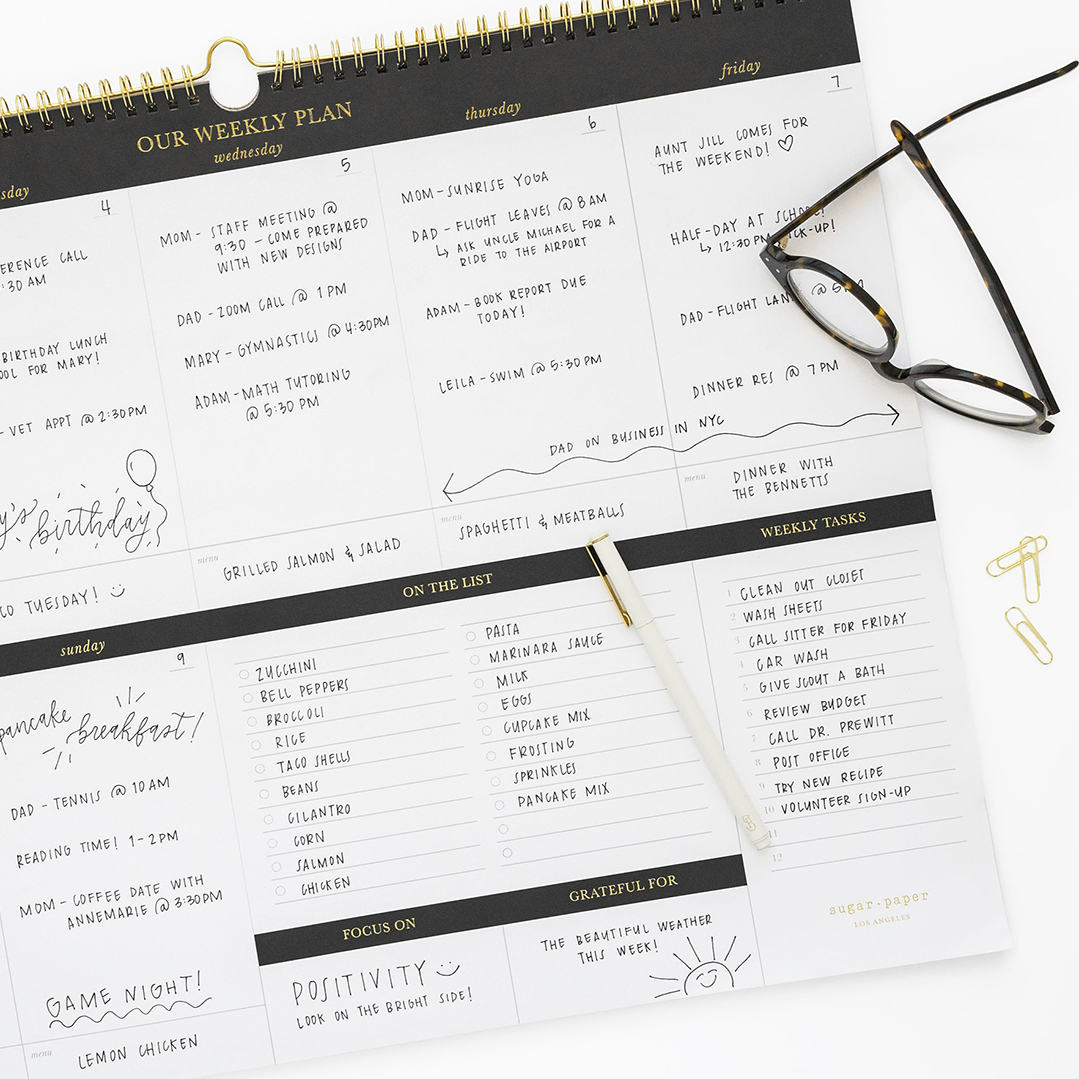 OUR WEEKLY PLAN
sday
4
ERENCE CALL
:30 AM
BIRTHDAY LUNCH
OOL FOR MARY!
- VET APPT @ 2:30PM
y's birthday
CO TUESDAY!
wednesday
5
MOM - STAFF MEETING @
9:30 - COME PREPARED
WITH NEW DESIGNS
DAD - ZOOM CALL @ 1 PM
MARY - GYMNASTICS @ 4:30PM
ADAM - MATH TUTORING
@ 5:30 PM
menu
GRILLED SALMON & SALAD
thursday
6
MOM - SUNRISE YOGA
DAD - FLIGHT LEAVES @ 8AM
↳ ASK UNCLE MICHAEL FOR A
RIDE TO THE AIRPORT
ADAM - BOOK REPORT DUE
TODAY!
LEILA - SWIM @ 5:30PM
DAD ON BUSINESS IN NYC
menu
SPAGHETTI & MEATBALLS
friday
7
AUNT JILL COMES FOR
THE WEEKEND! ♡
HALF-DAY AT SCHOOL!
↳ 12:30PM PICK-UP!
DAD - FLIGHT LAN @ 5PM
DINNER RES @ 7PM
menu
DINNER WITH
THE BENNETTS
sunday
9
pancake
breakfast!
DAD - TENNIS @ 10AM
READING TIME! 1-2PM
MOM - COFFEE DATE WITH
ANNEMARIE @ 3:30PM
GAME NIGHT!
menu
LEMON CHICKEN
ON THE LIST
ZUCCHINI
BELL PEPPERS
BROCCOLI
RICE
TACO SHELLS
BEANS
CILANTRO
CORN
SALMON
CHICKEN
PASTA
MARINARA SAUCE
MILK
EGGS
CUPCAKE MIX
FROSTING
SPRINKLES
PANCAKE MIX
WEEKLY TASKS
1 CLEAN OUT CLOSET
2 WASH SHEETS
3 CALL SITTER FOR FRIDAY
4 CAR WASH
5 GIVE SCOUT A BATH
6 REVIEW BUDGET
7 CALL DR. PREWITT
8 POST OFFICE
9 TRY NEW RECIPE
10 VOLUNTEER SIGN-UP
11
12
FOCUS ON
POSITIVITY
LOOK ON THE BRIGHT SIDE!
GRATEFUL FOR
THE BEAUTIFUL WEATHER
THIS WEEK!
sugar·paper
LOS ANGELES